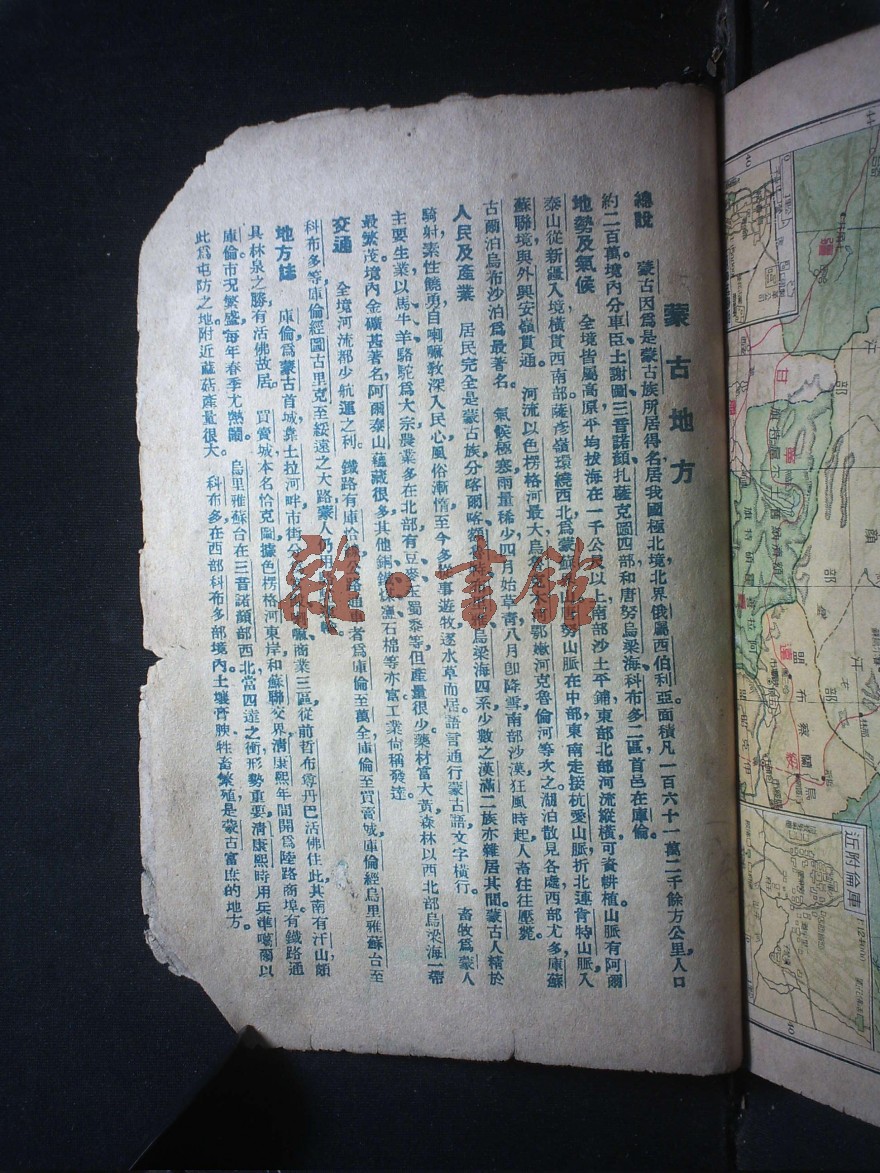 蒙古地方
總說　蒙古因爲是蒙古族所居得名居我國極北境北界俄屬西伯利亞面積凡一百六十一萬二千餘方公里人口
約二百萬境內分車臣土謝圖三音諾顏扎薩克圖四部和唐努烏梁海科布多二區首邑在庫倫。
地勢及氣候　全境皆屬高原平均拔海在一千公尺以上南部沙土平鋪東部北部河流縱橫可資耕植山脈有阿爾
泰山從新疆入境橫貫西南部薩彥嶺環繞西北爲蒙蘇界唐努山脈在中部東南走接杭愛山脈折北連肯特山脈入
蘇聯境與外興安嶺貫通。　河流以色楞格河最大烏魯克木河鄂嫩河克魯倫河等次之湖泊散見各處西部尤多庫蘇
古爾泊烏布沙泊爲最著名。　氣候極寒雨量稀少四月始草靑八月卽降雪南部沙漠狂風時起人畜往往壓斃。
人民及產業　居民完全是蒙古族分喀爾喀額烏梁海四系少數之漢滿二族亦雜居其間蒙古人精於
騎射素性饒勇自喇嘛教深入民心風俗漸惰至今多從事遊牧逐水草而居語言通行蒙古語文字橫行。　畜牧爲蒙人
主要生業以馬牛羊駱駝爲大宗農業多在北部有豆麥玉蜀黍等但產量很少藥材富大黃森林以西北部烏梁海一帶
最繁茂境內金礦甚著名阿爾泰山蘊藏很多其他銅鐵煤鹽石棉等亦富工業尙稱發達。
交通　全境河流都少航運之利。　鐵路有庫恰公路通者爲庫倫至萬全庫倫至買賣城庫倫經烏里雅蘇台至
科布多等庫倫經圖古里克至綏遠之大路蒙人仍用
地方誌　庫倫爲蒙古首城靠土拉河畔市街分嘛商業三區從前哲布尊丹巴活佛住此其南有汗山頗
具林泉之勝有活佛故居。　買賣城本名恰克圖據色楞格河東岸和蘇聯交界清康熙年間開爲陸路商埠有鐵路通
庫倫市況繁盛每年春季尤熱鬧。　烏里雅蘇台在三音諾顏部西北當四達之衝形勢重要清康熙時用兵準噶爾以
此爲屯防之地附近蘑菇產量很大。　科布多在西部科布多部境內土壤膏腴牲畜繁殖是蒙古富庶的地方。
雜·書館
庫倫附近